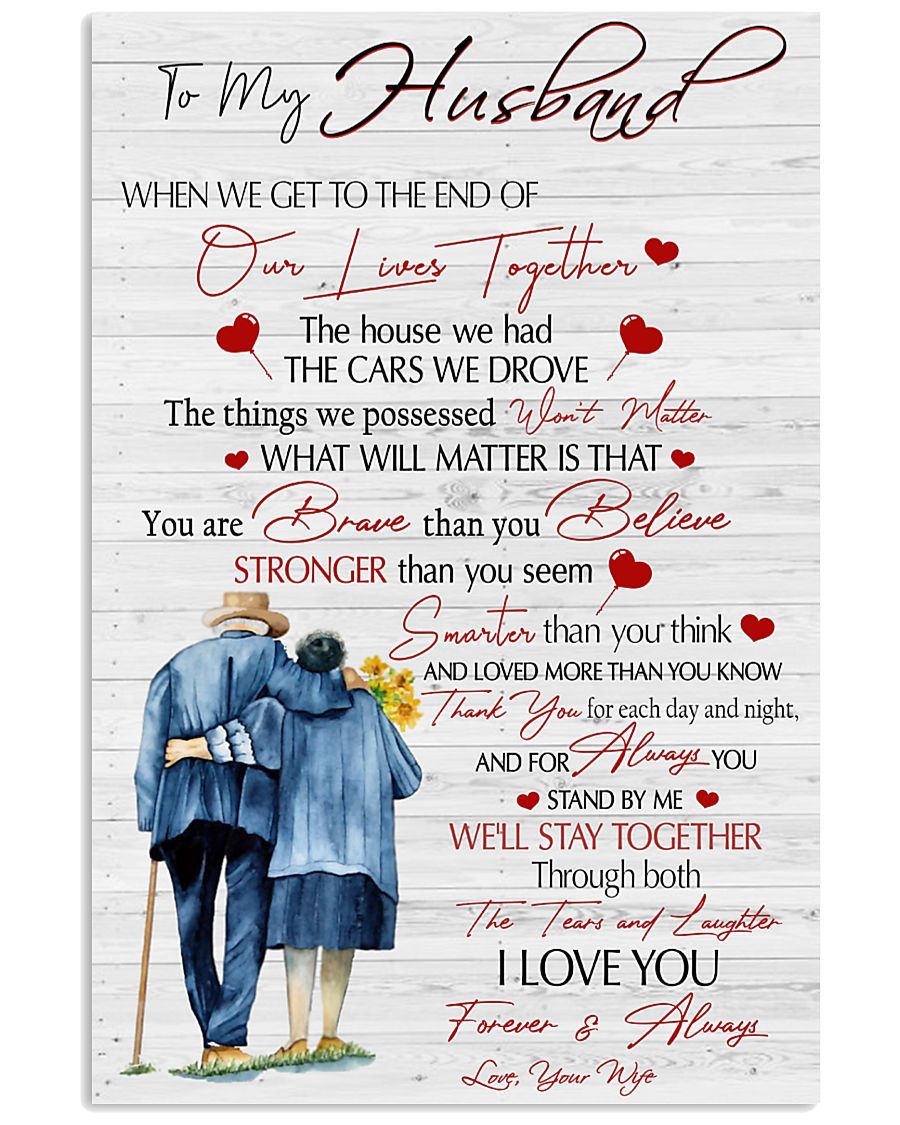 To My Husband
WHEN WE GET TO THE END OF
Our Lives Together
The house we had
THE CARS WE DROVE
The things we possessed Won't Matter
WHAT WILL MATTER IS THAT
You are Brave than you Believe
STRONGER than you seem
Smarter than you think
AND LOVED MORE THAN YOU KNOW
Thank You for each day and night,
AND FOR Always YOU
STAND BY ME
WE'LL STAY TOGETHER
Through both
The Tears and Laughter
I LOVE YOU
Forever & Always
Love, Your Wife